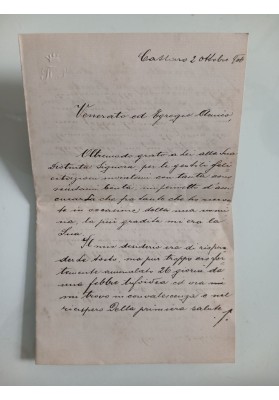 Cattaro 2 Ottobre
Venerato ed Egregio Amico,
Oltremodo grato a Lei alla Sua
Distinta Signora, per le gentili feli
citazioni inviatemi con tanta
carta, mi permetto d'as
sicurarla che fra tante che ho rice
vuto in occasione della mia nomi
na, la più gradita mi era la
Sua.
Il mio desiderio era di rispon
derLe tosto, ma pur troppo ero for
temente ammalato 26 giorni da
una febbre tifoidea ed ora mi
trovo in convalescenza e nel
ricupero della primiera salute.